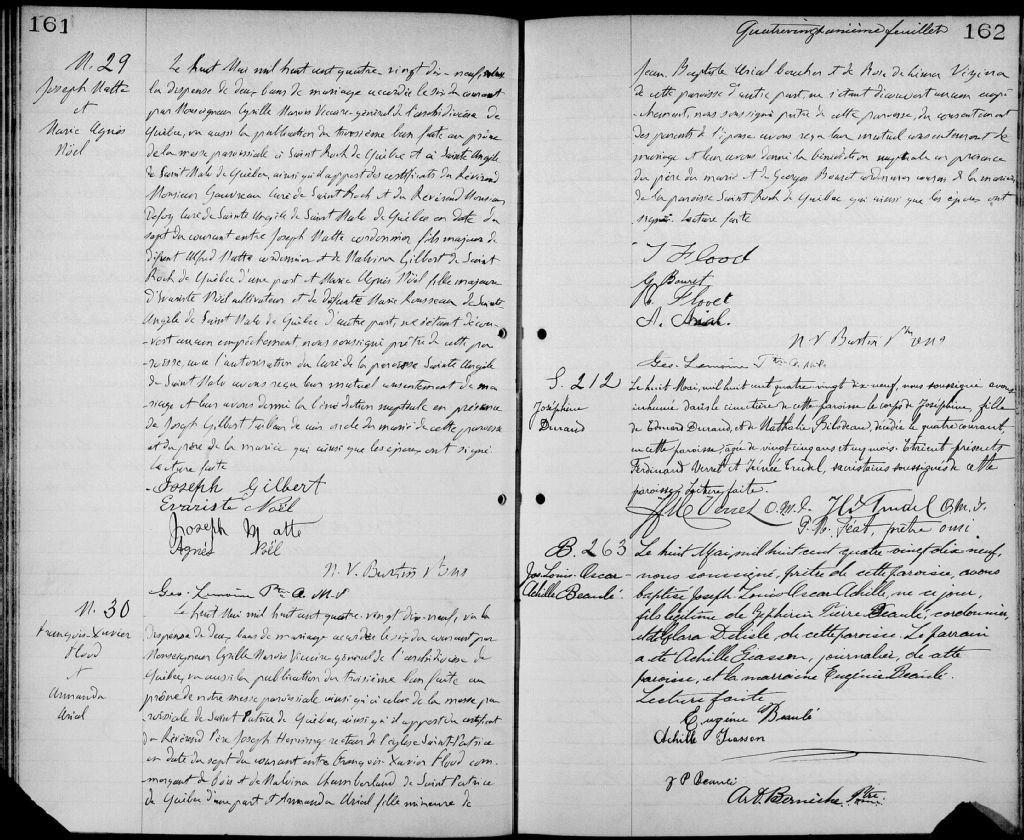 161
N. 29
Joseph Matte
et
Marie Agnès
Noël
Le huit Mai mil huit cent quatre-vingt dix-neuf, vu
la dispense de deux bans de mariage accordée le six du courant
par Monseigneur Cyrille Marois Vicaire-général de l'archidiocèse de
Québec, vu aussi la publication du troisième ban faite au prône
de la messe paroissiale à Saint Roch de Québec et à Sainte Angèle
de Saint Malo de Québec, ainsi qu'il appert des certificats du Révérend
Monsieur Gauvreau curé de Saint Roch et du Révérend Monsieur
Defoy curé de Sainte Angèle de Saint Malo de Québec en date du
sept du courant entre Joseph Matte cordonnier fils majeur de
défunt Alfred Matte cordonnier et de Malvina Gilbert de Saint
Roch de Québec d'une part et Marie Agnès Noël fille majeure
d'Evariste Noël cultivateur et de défunte Marie Rousseau de Sainte
Angèle de Saint Malo de Québec d'autre part, ne s'étant décou-
vert aucun empêchement, nous soussigné prêtre de cette pa-
roisse, vu l'autorisation du curé de la paroisse Sainte Angèle
de Saint Malo avons reçu leur mutuel consentement de ma-
riage et leur avons donné la bénédiction nuptiale en présence
de Joseph Gilbert tailleur de cuir oncle du marié de cette paroisse
et du père de la mariée qui ainsi que les époux ont signé.
Lecture faite
Joseph Gilbert
Evariste Noël
Joseph Matte
Agnès Noël
N. V. Burtin Ptre OMI
Geo. Lemoine Ptre O.M.I
N. 30
François-Xavier
Flood
et
Armanda
Arial
Le huit Mai mil huit cent quatre-vingt dix-neuf, vu la
dispense de deux bans de mariage accordée le six du courant par
Monseigneur Cyrille Marois Vicaire général de l'archidiocèse de
Québec, vu aussi la publication du troisième ban faite au
prône de notre messe paroissiale ainsi qu'à celui de la messe pa-
roissiale de Saint Patrice de Québec, ainsi qu'il appert du certificat
du Révérend Père Joseph Henning recteur de l'église Saint-Patrice
en date du sept du courant entre François-Xavier Flood com-
merçant de bois et de Malvina Chamberland de Saint Patrice
de Québec d'une part et Armanda Arial fille mineure de
Quatrevingtunième feuillet
162
Jean Baptiste Arial boucher et de Rose de Lima Vézina
de cette paroisse d'autre part ne s'étant découvert aucun empê-
chement, nous soussigné prêtre de cette paroisse, du consentement
des parents de l'épouse avons reçu leur mutuel consentement de
mariage et leur avons donné la bénédiction nuptiale en présence
du père du marié et de Georges Bouret cordonnier cousin de la mariée
de la paroisse Saint Roch de Québec qui ainsi que les époux ont
signé. Lecture faite
J Flood
G Bouret
A. Arial.
N. V Burtin Ptre OMI
Geo. Lemoine Ptre O.M.I.
S. 212
Joséphine
Durand
Le huit Mai, mil huit cent quatre vingt dix neuf, nous soussigné avons
inhumé dans le cimetière de cette paroisse le corps de Joséphine, fille
de Edmond Durand, et de Nathalie Bilodeau, décédée le quatre courant,
en cette paroisse, âgée de vingt cinq ans et un mois. Etaient présents
Ferdinand Verret et Irénée Trudel, sacristains soussignés de cette
paroisse. Lecture faite.
Verret O.M.I. Trudel O.M.I.
prêtre omi
B. 263
Jos. Louis-Oscar-
Achille Beaulé
Le huit Mai, mil huit cent quatre vingt dix neuf,
nous soussigné, prêtre de cette paroisse, avons
baptisé Joseph Louis Oscar Achille, né ce jour,
fils légitime de Zéphirin Pierre Beaulé, cordonnier,
et de Clara Delisle de cette paroisse. Le parrain
a été Achille Giasson, journalier, de cette
paroisse, et la marraine Eugénie Beaulé.
Lecture faite
Eugénie Beaulé
Achille Giasson
P Beaulé